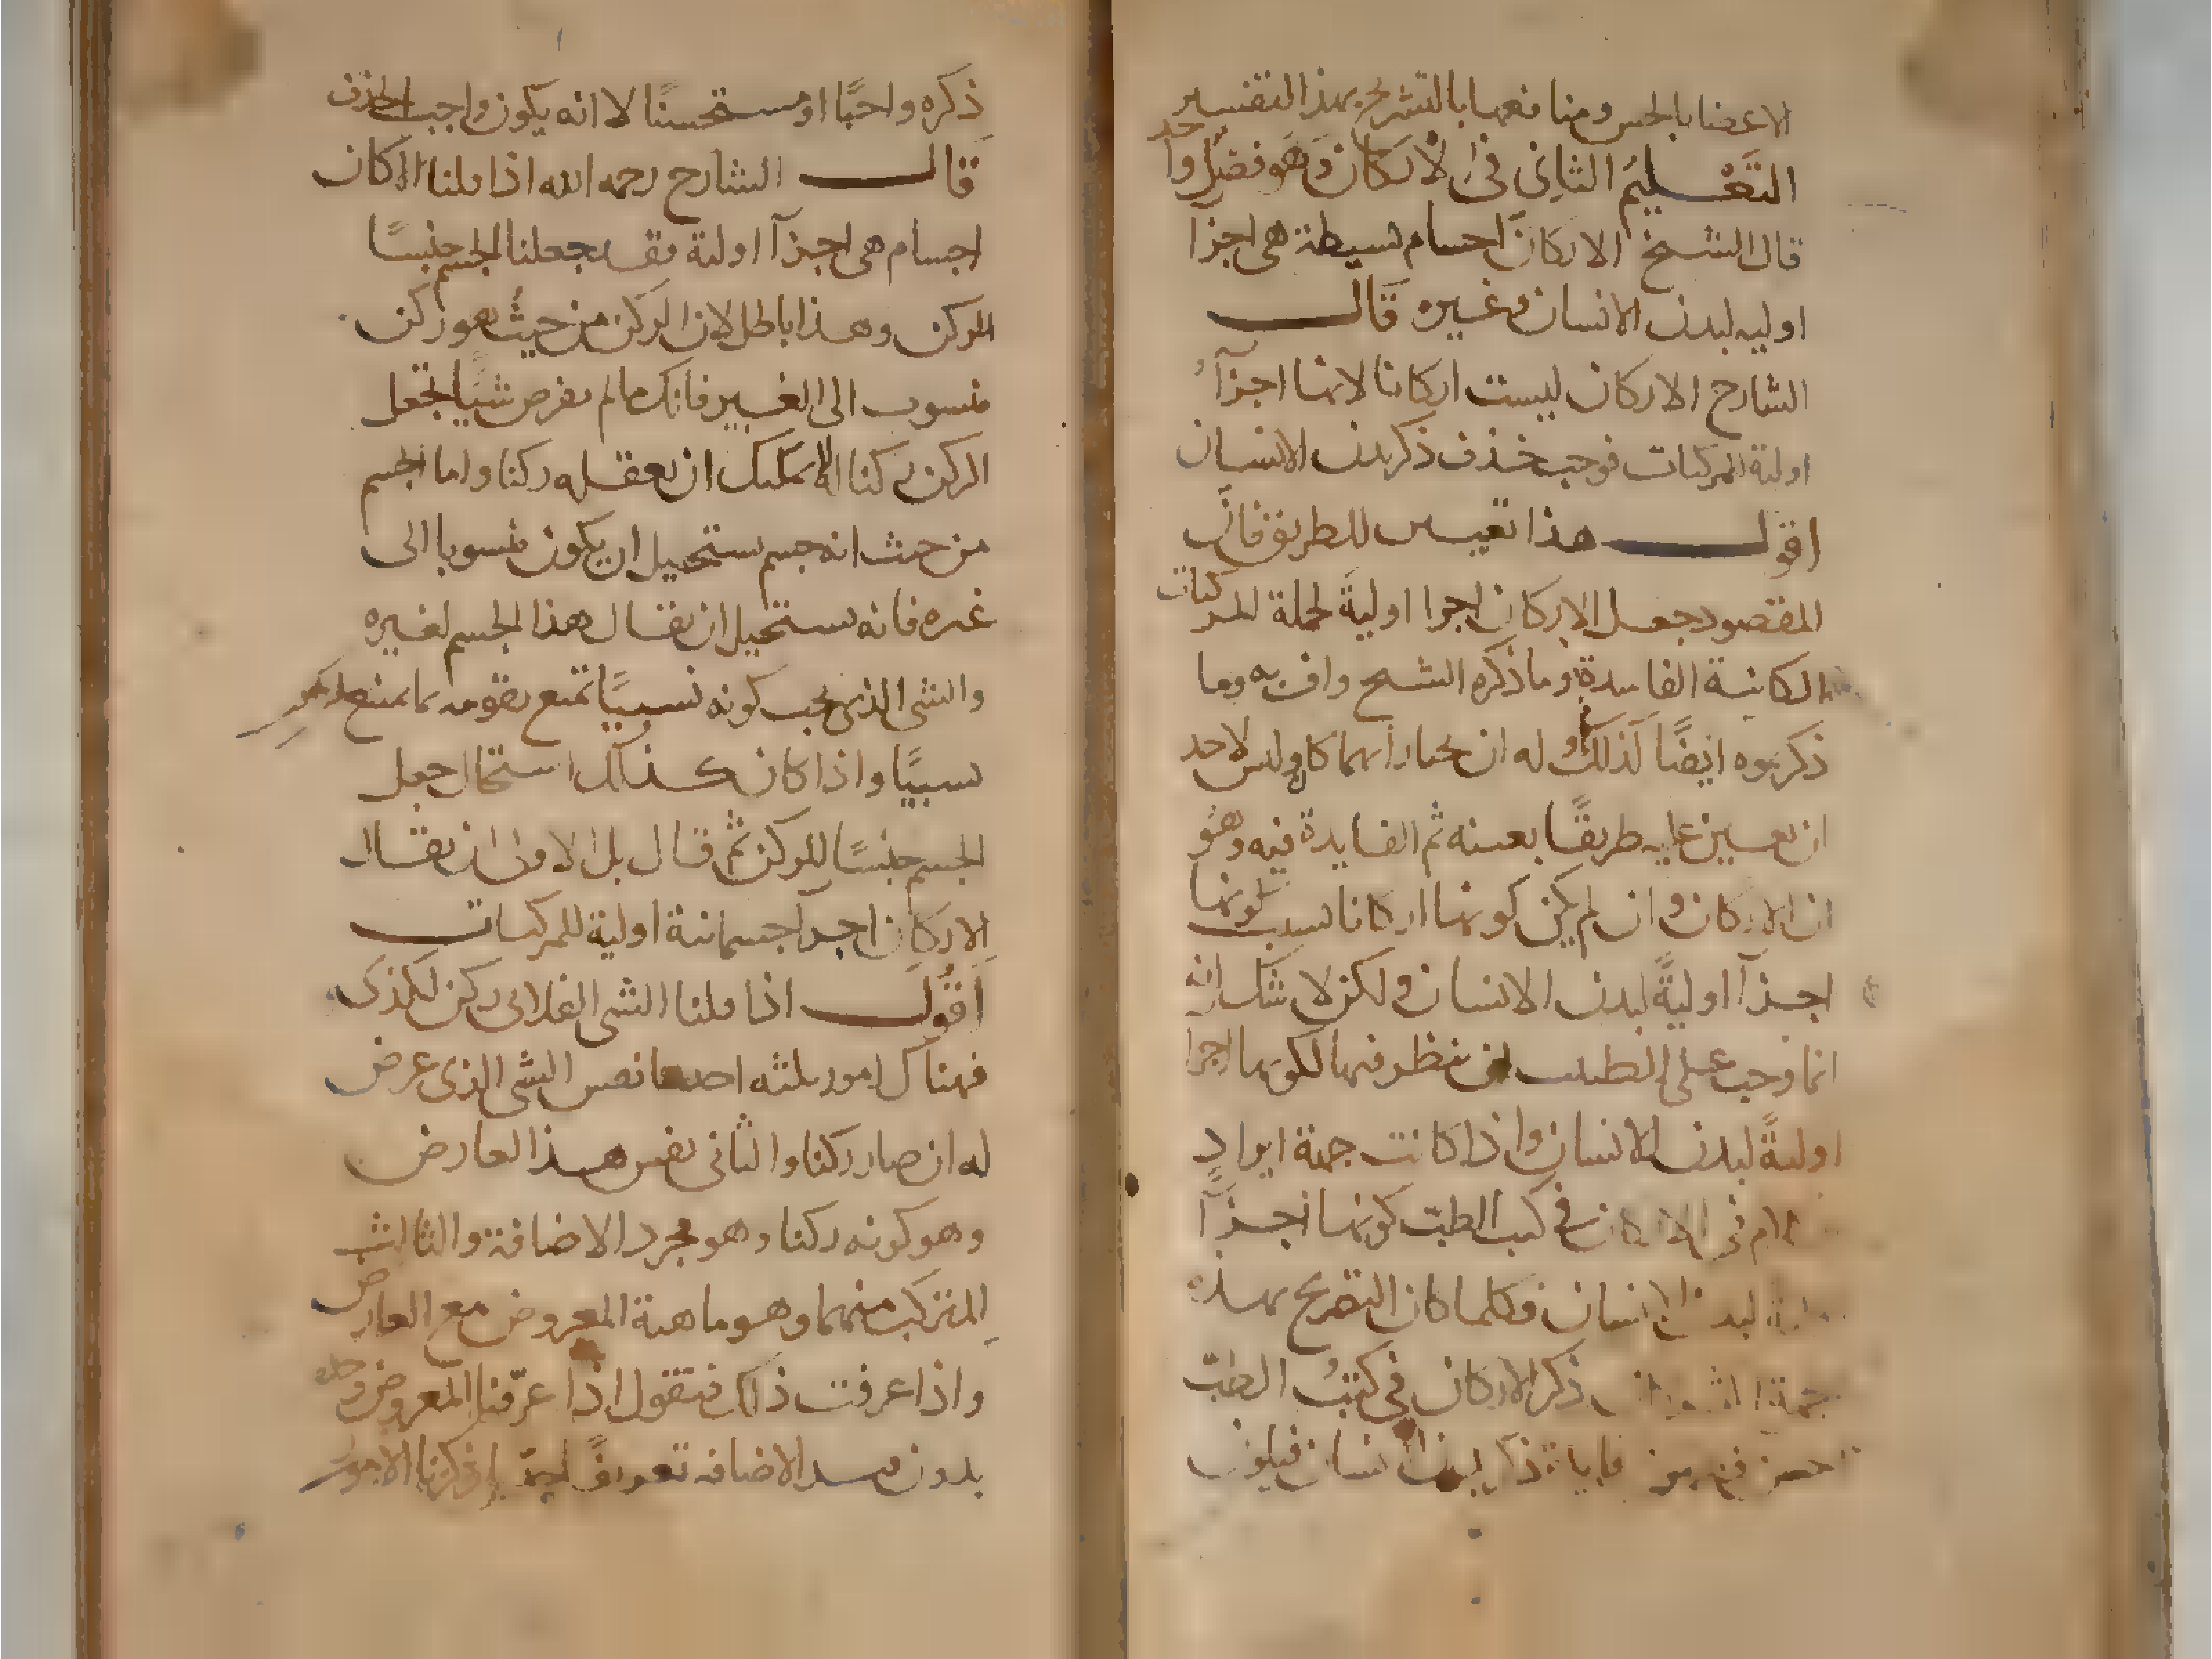 الاعضا بالحس ومنافعها بالتشريح بهذا التفسير
التَّعْلِيمُ الثاني في الاركان وهو فصل واحد
قال الشيخ الاركان اجسام بسيطة هى اجزا
اوليه لبدن الانسان وغيره قال
الشارح الاركان ليست اركانا لانها اجزآء
اولية للمركبات فوجب حذف ذكر بدن الانسان
اقول هذا تعيين للطريق فان
المقصود جعل الاركان اجزا اولية لجملة للمركبات
الكائنة الفاسدة وما ذكره الشيخ واف به وما
ذكرتموه ايضًا كذلك وله ان يختار ايهما كان وليس لاحد
ان يعين عليه طريقًا بعينه ثم الفايدة فيه وهو
ان الاركان وان لم يكن كونها اركانا بسبب كونها
اجزآ اوليةً لبدن الانسان ولكن لا شك انه
انما وجب على الطبيب ان ينظر فيها لكونها اجزا
اوليةً لبدن الانسان واذا كانت جهة ايراد
الكلام فى الاركان في كتب الطبّ كونها اجزآ
اولية لبدن الانسان فكلما كان التصريح بهذه
ذكر الاركان في كتب الطبّ
ذكر بدن الانسان فيكون
ذكره واجبًا او مستحسنًا لا انه يكون واجب الحذف
قال الشارح رحمه الله اذا قلنا الاركان
اجسام هى اجزآ اولية فقد جعلنا الجسم جنسًا
للركن وهذا باطل لان الركن من حيث هو ركن
منسوب الى الغير فانك ما لم تفرض شيًا تجعل
الركن ركنا له لا يمكنك ان تعقله ركنا واما الجسم
من حيث انه جسم يستحيل ان يكون منسوبا الى
غيره فانه يستحيل ان يقال هذا الجسم لغيره
والشى الذى يجب كونه نسبيًا يمتنع تقومه بما يمتنع
نسبيًا واذا كان كذلك استحال جعل
الجسم جنسًا للركن ثم قال بل الاولى ان يقال
الاركان اجزآ جسمانية اولية للمركبات
اقول اذا قلنا الشى الفلانى ركن لكذى
فهناك امور ثلثه احدها نفس الشى الذى عرض
له ان صار ركنا والثانى نفس هذا العارض
وهو كونه ركنا وهو مجرد الاضافة والثالث
المتركب منهما وهو ماهية المعروض مع العارض
واذا عرفت ذلك فنقول اذا عرّفنا المعروض وحده
بدون قيد الاضافه تعريفًا